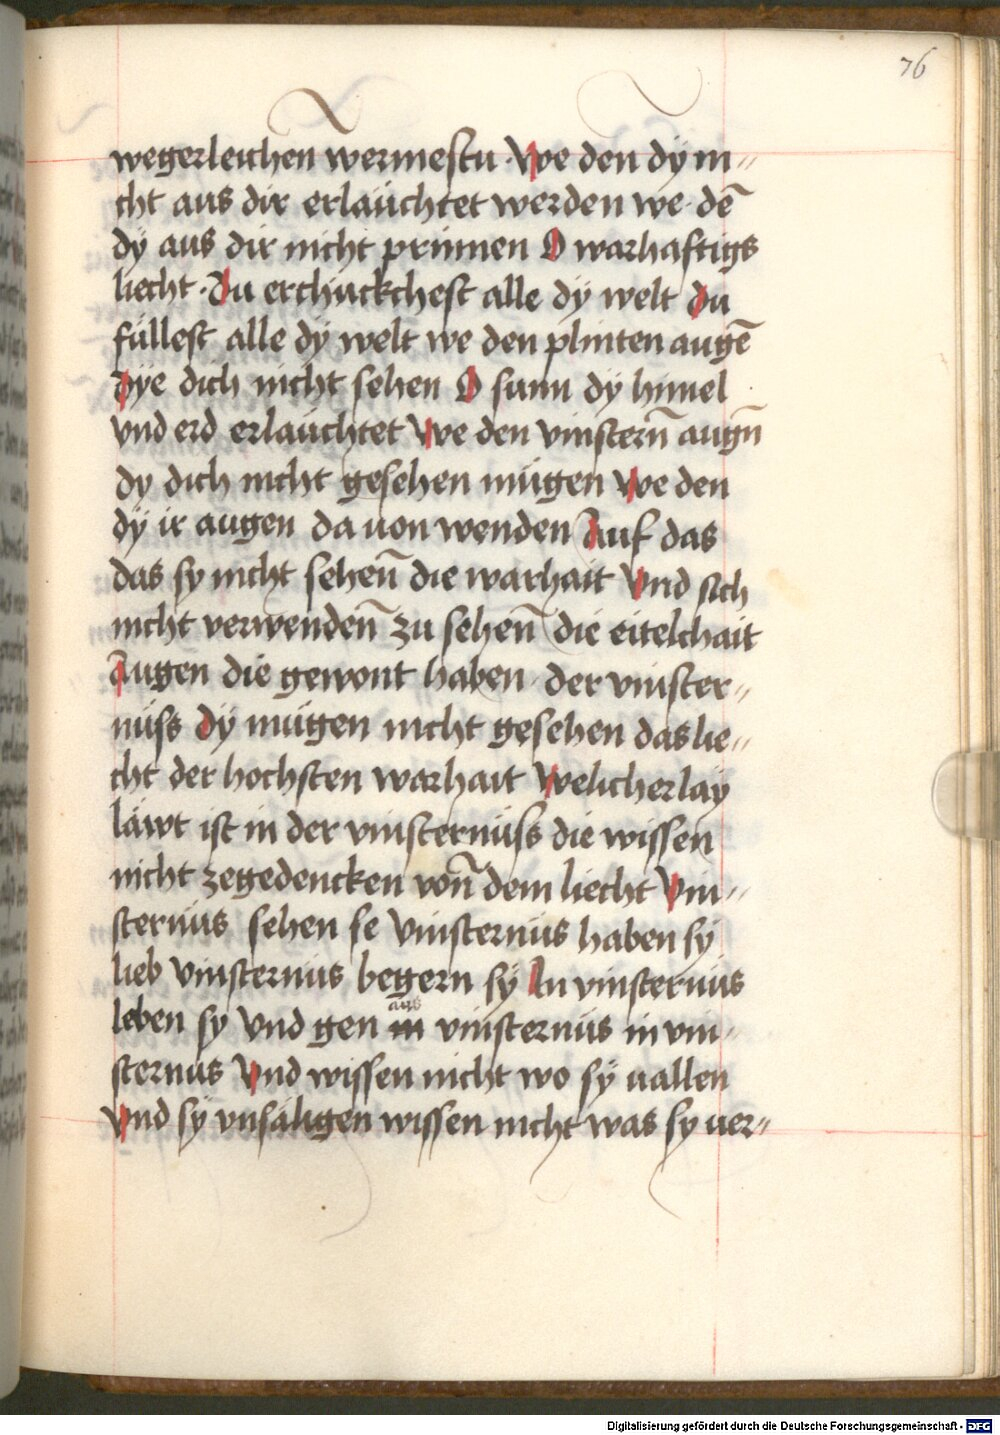 76
wegerleichen wermestu · We den dÿ ni〃
cht aus dir erlaüchtet werden we den̄
dÿ aus dir nicht prinnen O warhaftigs
liecht · Du erchuckchest alle dÿ welt Du
füllest alle dÿ welt we den plinten augē
Dÿe dich nicht sehen O sunn dÿ himel
vnd erd erlaüchtet We den vinstern̄ augn̄
dy dich nicht gesehen mügen We den
dÿ ir augen da uon wenden Auf das
das sy nicht sehen̄ die warhait Vnd sich
nicht verwenden̄ zu sehen̄ die eitelchait
Augen die gewont haben der vinster〃
nüss Dÿ mügen nicht gesehen das lie〃
cht der hochsten warhait Welicherlaÿ
läwt ist in der vinsternüss die wissen
nicht zegedencken von̄ dem liecht Vin〃
sternüs sehen se Vinsternüs haben sÿ
lieb Vinsternüs begern sÿ In vinsternüs
leben sy Vnd gen aus vinsternüs in vin〃
sternus Vnd wissen nicht wo sÿ uallen
Vnd sÿ vnsäligen wissen nicht was sy uer〃
Digitalisierung gefördert durch die Deutsche Forschungsgemeinschaft - DFG